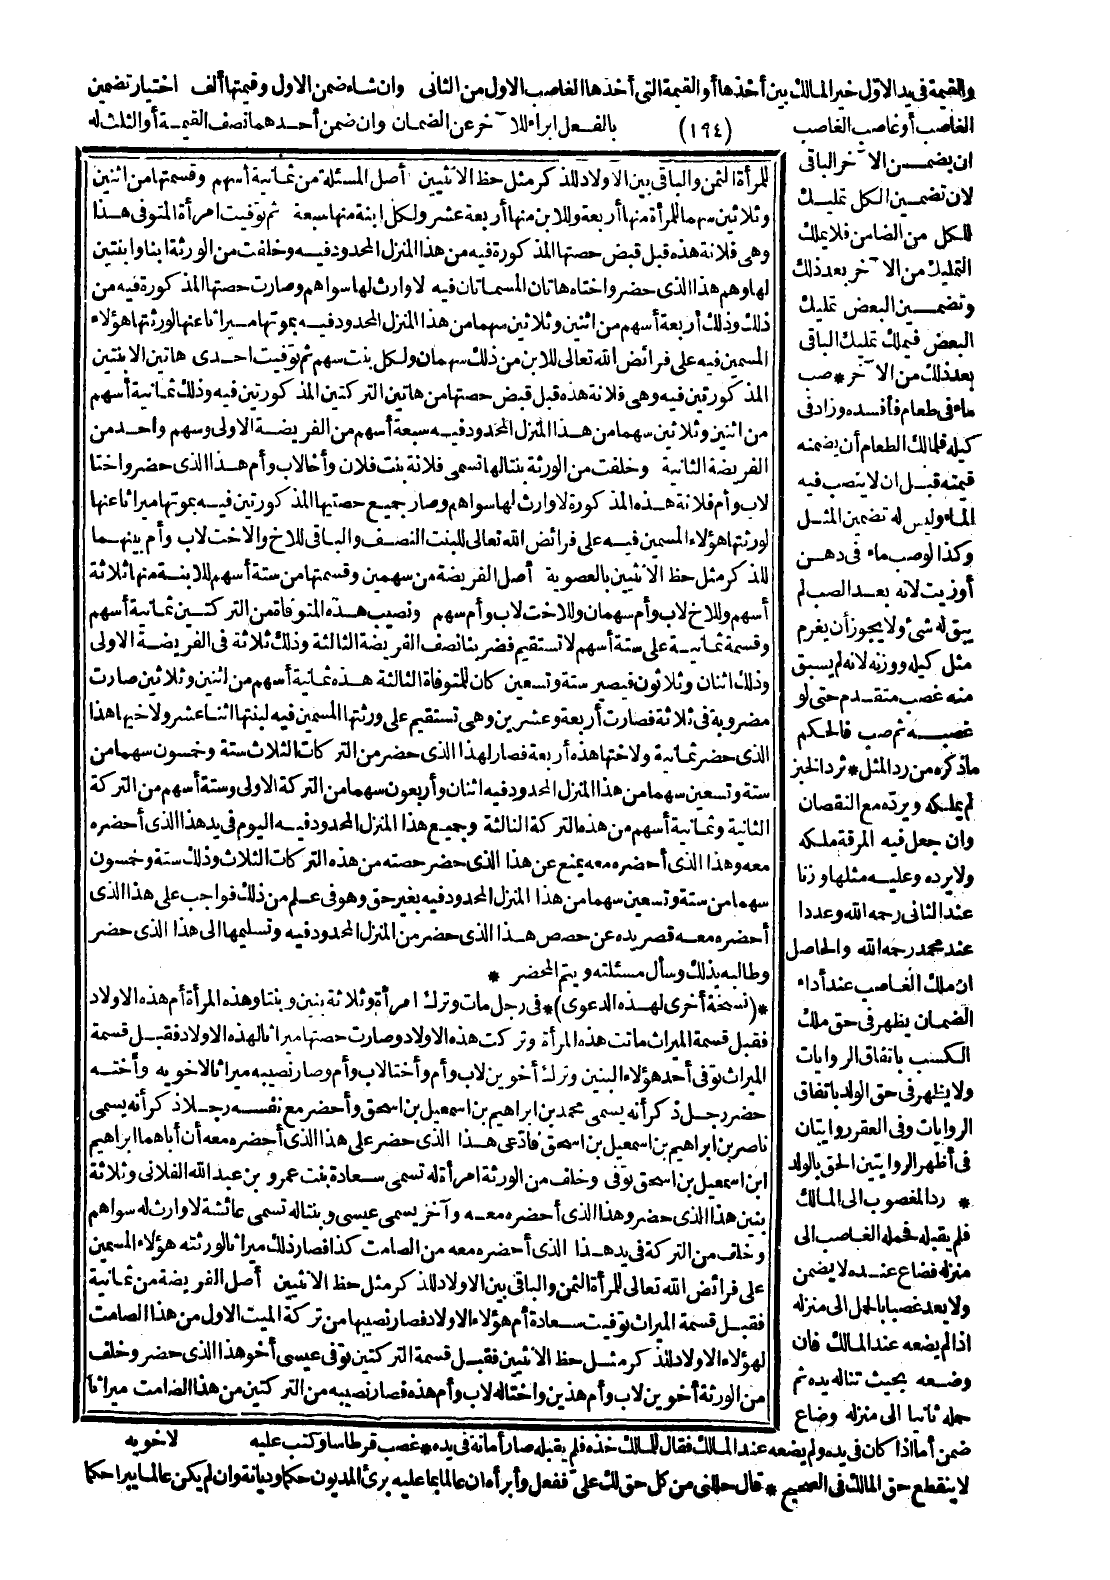 والقيمة في يد الاول خير المالك بين أخذها أو القيمة التي أخذها الغاصب الاول من الثاني وان شاء ضمن الاول وقيمتها ألف اختيار تضمين
الغاصب أو غاصب الغاصب (١٩٤) بالفعل ابراء للآخر عن الضمان وان ضمن أحدهما نصف القيمة أو الثلث له
ان يضمن الآخر الباقى
لان تضمين الكل تمليك
للكل من الضامن فلا يملك
التمليك من الآخر بعد ذلك
وتضمين البعض تمليك
البعض فيملك تمليك الباقى
بعد ذلك من الآخر * صب
ماء فى طعام فأفسده وزاد فى
كيله فلمالك الطعام أن يضمنه
قيمته قبل ان لا يتصب فيه
الماء وليس له تضمين المثل
وكذا لو صب ماء فى دهن
أو زيت لانه بعد الصب لم
يبق له شئ ولا يجوز أن يغرم
مثل كيله ووزنه لانه لم يسبق
منه غصب متقدم حتى لو
غصبه ثم صب فالحكم
ماذكره من رد المثل * ثرد الخبز
لم يملكه ويرده مع النقصان
وان جعل فيه المرقة ملكه
ولا يرده وعليه مثلها وزنا
عند الثانى رحمه الله وعددا
عند محمد رحمه الله والحاصل
ان ملك الغاصب عند أداء
الضمان يظهر فى حق ملك
الكسب باتفاق الروايات
ولا يظهر فى حق الولد باتفاق
الروايات وفى العقر روايتان
فى أظهر الروايتين الحق بالولد
* رد المغصوب الى المالك
فلم يقبله فحمله الغاصب الى
منزله فضاع عنده لا يضمن
ولا يعد غصبا بالحمل الى منزله
اذا لم يضعه عند المالك فان
وضعه بحيث تناله يده ثم
حمله ثانيا الى منزله وضاع
للمرأة الثمن والباقى بين الاولاد للذكر مثل حظ الانثيين أصل المسئلة من ثمانية أسهم وقسمتها من اثنين
وثلاثين سهما للمرأة منها أربعة وللابن منها أربعة عشر ولكل ابنة منها سبعة ثم توفيت امرأة المتوفى هذا
وهى فلانة هذه قبل قبض حصتها المذكورة فيه من هذا المنزل المحدود فيه وخلفت من الورثة ابنا وابنتين
لها وهم هذا الذى حضر واختاه هاتان المسماتان فيه لا وارث لها سواهم وصارت حصتها المذكورة فيه من
ذلك وذلك أربعة أسهم من اثنين وثلاثين سهما من هذا المنزل المحدود فيه بموتها ميراثا عنها لورثتها هؤلاء
المسمين فيه على فرائض الله تعالى للابن من ذلك سهمان ولكل بنت سهم ثم توفيت احدى هاتين الابنتين
المذكورتين فيه وهى فلانة هذه قبل قبض حصتها من هاتين التركتين المذكورتين فيه وذلك ثمانية أسهم
من اثنين وثلاثين سهما من هذا المنزل المحدود فيه سبعة أسهم من الفريضة الاولى وسهم واحد من
الفريضة الثانية وخلفت من الورثة بنتا لها تسمى فلانة بنت فلان وأخا لاب وأم هذا الذى حضر واختا
لاب وأم فلانة هذه المذكورة لا وارث لها سواهم وصار جميع حصتيها المذكورتين فيه بموتها ميراثا عنها
لورثتها هؤلاء المسمين فيه على فرائض الله تعالى للبنت النصف والباقى للاخ والاخت لاب وأم بينهما
للذكر مثل حظ الانثيين بالعصوبة أصل الفريضة من سهمين وقسمتها من ستة أسهم للابنة منها ثلاثة
أسهم وللاخ لاب وأم سهمان وللاخت لاب وأم سهم ونصيب هذه المتوفاة من التركتين ثمانية أسهم
وقسمة ثمانية على ستة أسهم لا تستقيم فضربنا نصف الفريضة الثالثة وذلك ثلاثة فى الفريضة الاولى
وذلك اثنان وثلاثون فيصير ستة وتسعين كان للمتوفاة الثالثة هذه ثمانية أسهم من اثنين وثلاثين صارت
مضروبة فى ثلاثة فصارت أربعة وعشرين وهى تستقيم على ورثتها المسمين فيه لبنتها اثنا عشر ولاخيها هذا
الذى حضر ثمانية ولاختها هذه أربعة فصار لهذا الذى حضر من التركات الثلاث ستة وخمسون سهما من
ستة وتسعين سهما من هذا المنزل المحدود فيه اثنان وأربعون سهما من التركة الاولى وستة أسهم من التركة
الثانية وثمانية أسهم من هذه التركة الثالثة وجميع هذا المنزل المحدود فيه اليوم فى يد هذا الذى أحضره
معه وهذا الذى أحضره معه يمنع عن هذا الذى حضر حصته من هذه التركات الثلاث وذلك ستة وخمسون
سهما من ستة وتسعين سهما من هذا المنزل المحدود فيه بغير حق وهو فى علم من ذلك فواجب على هذا الذى
أحضره معه قصر يده عن حصص هذا الذى حضر من المنزل المحدود فيه وتسليمها الى هذا الذى حضر
وطالبه بذلك وسأل مسئلته ويتم المحضر *
* (نسخة أخرى لهذه الدعوى) * فى رجل مات وترك امرأة وثلاثة بنين وبنتا وهذه المرأة أم هذه الاولاد
فقبل قسمة الميراث ماتت هذه المرأة وتركت هذه الاولاد وصارت حصتها ميراثا لهذه الاولاد فقبل قسمة
الميراث توفى أحد هؤلاء البنين وترك أخوين لاب وأم وأختا لاب وأم وصار نصيبه ميراثا لاخويه وأخته
حضر رجل ذكر أنه يسمى محمد بن ابراهيم بن اسمعيل بن اسحق وأحضر مع نفسه رجلا ذكر أنه يسمى
ناصر بن ابراهيم بن اسمعيل بن اسحق فادعى هذا الذى حضر على هذا الذى أحضره معه أن أباهما ابراهيم
ابن اسمعيل بن اسحق توفى وخلف من الورثة امرأة له تسمى سعادة بنت عمرو بن عبد الله الفلانى وثلاثة
بنين هذا الذى حضر وهذا الذى أحضره معه وآخر يسمى عيسى وبنتا له تسمى عائشة لا وارث له سواهم
وخلف من التركة فى يد هذا الذى أحضره معه من الصامت كذا فصار ذلك ميراثا لورثته هؤلاء المسمين
على فرائض الله تعالى للمرأة الثمن والباقى بين الاولاد للذكر مثل حظ الانثيين أصل الفريضة من ثمانية
فقبل قسمة الميراث توفيت سعادة أم هؤلاء الاولاد فصار نصيبها من تركة الميت الاول من هذا الصامت
لهؤلاء الاولاد للذكر مثل حظ الانثيين فقبل قسمة التركتين توفى عيسى أخو هذا الذى حضر وخلف
من الورثة أخوين لاب وأم هذين واختا له لاب وأم هذه فصار نصيبه من التركتين من هذا الصامت ميراثا
ضمن أما اذا كان فى يده ولم يضعه عند المالك فقال للمالك خذه فلم يقبله صار أمانة فى يده * غصب قرطاسا وكتب عليه لاخويه
لا ينقطع حق المالك فى الصحيح * قال حللنى من كل حق لك على ففعل وأبرأه ان عالما بما عليه برئ المديون حكما وديانة وان لم يكن عالما يبرأ حكما